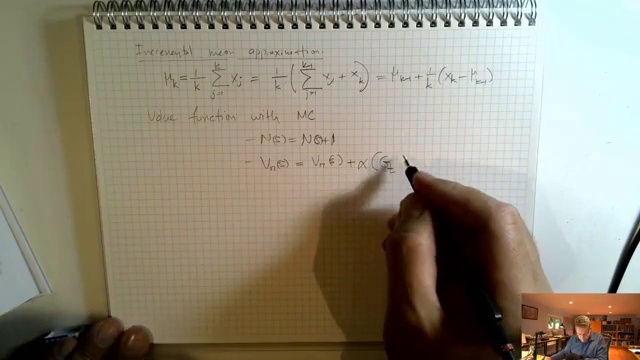 Incremental mean approximation:
μ_k = 1/k Σ_{j=1}^{k} x_j = 1/k ( Σ_{j=1}^{k-1} x_j + x_k ) = μ_{k-1} + 1/k (x_k - μ_{k-1})
Value function with MC
- N(s) = N(s)+1
- V_π(s) = V_π(s) + α (G_t